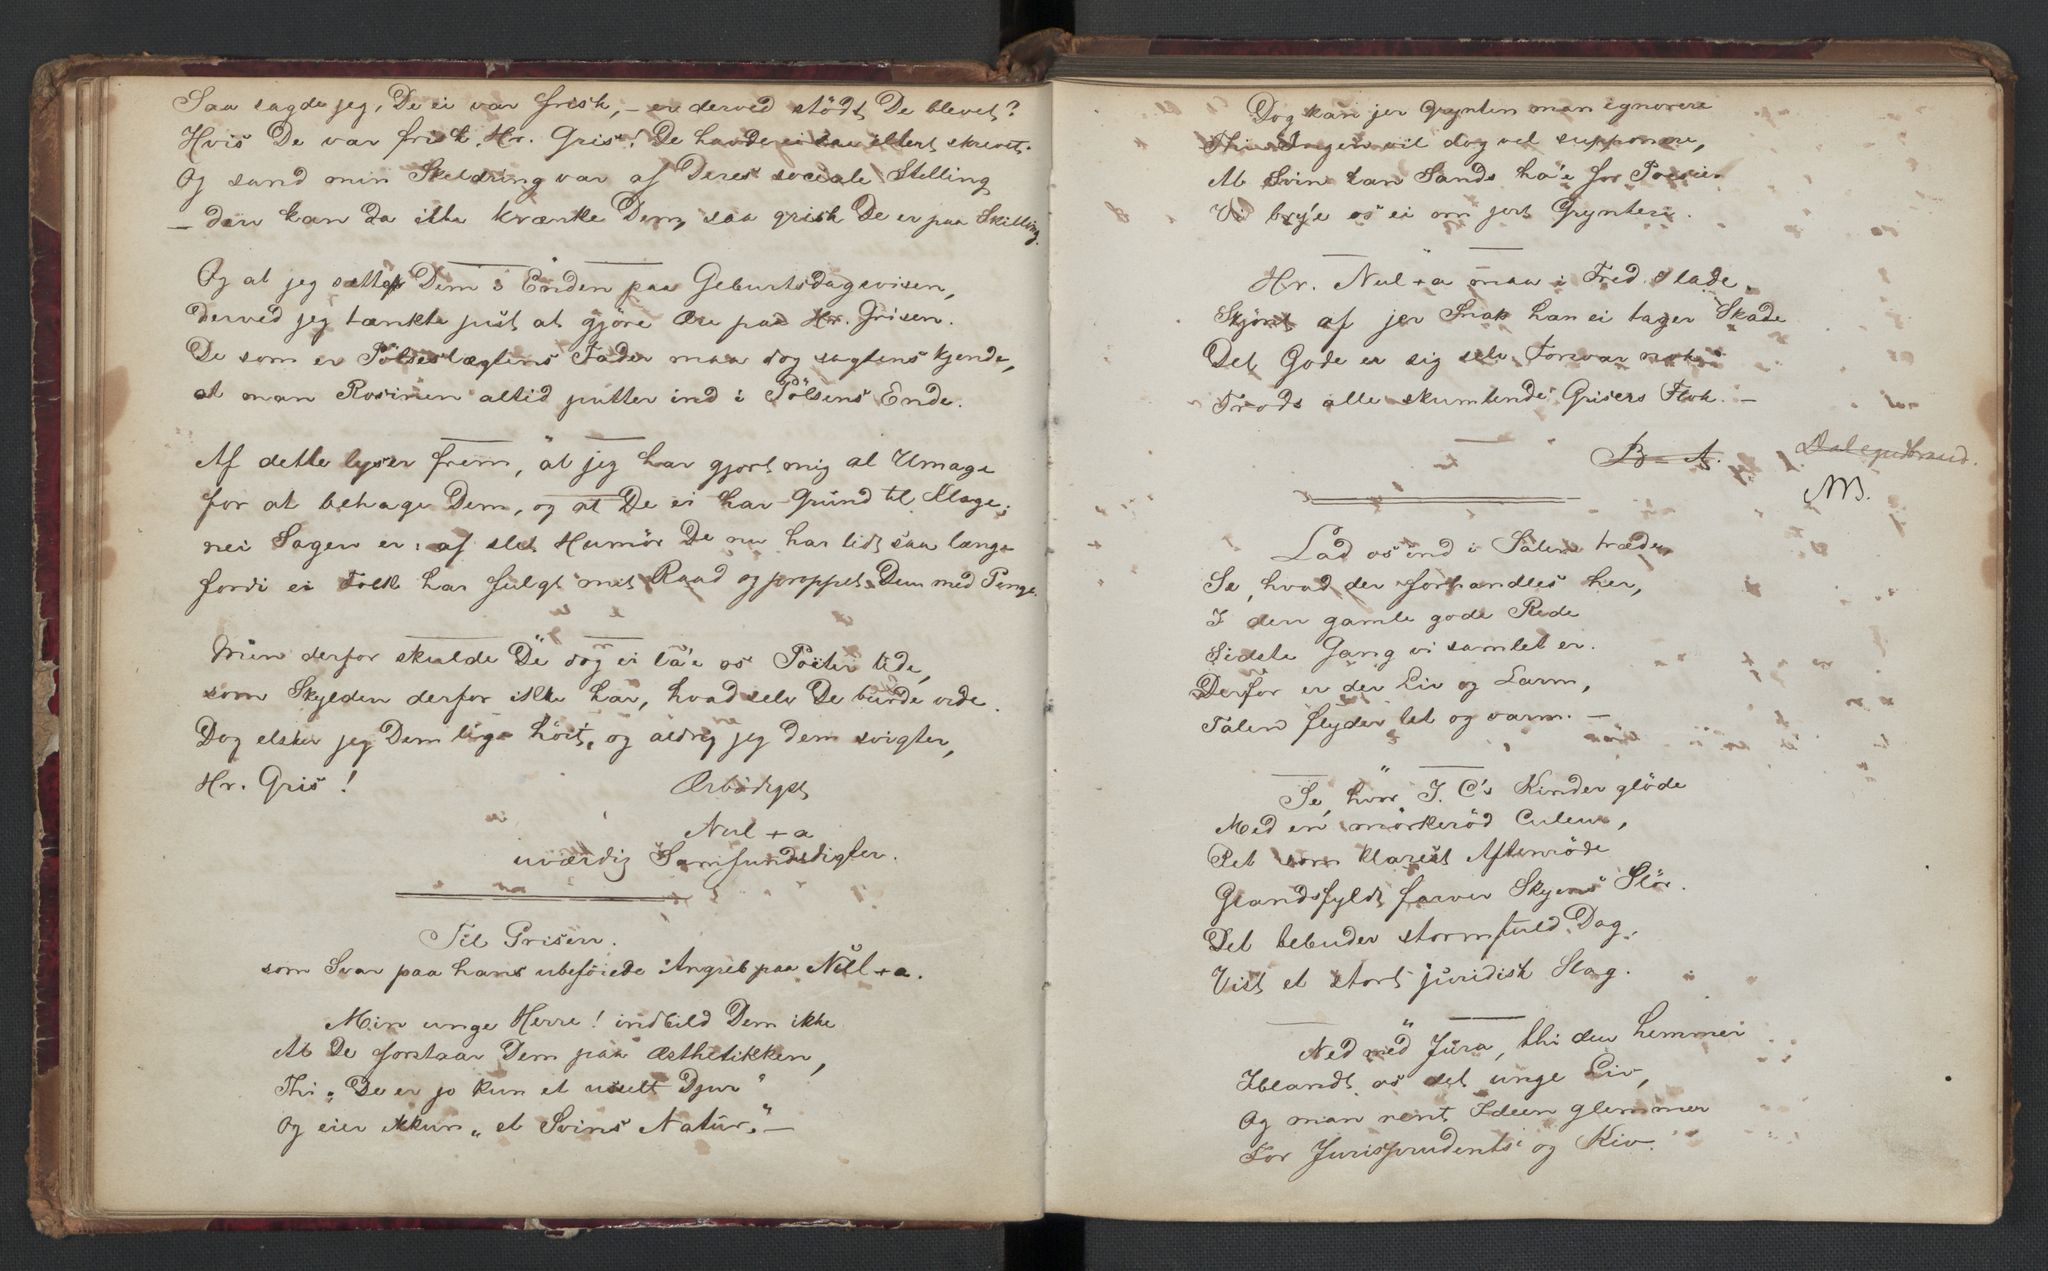 Saa sagde jeg, De ei var frisk, – er derved stödt De blevet?
Hvis De var frisk, Hr. Gris! De havde ei saa ilter skrevet.
Og sand min Skildring var af Deres sociale Stilling
– den kan da ikke krænke Dem, saa grisk De er paa Skilling.
Og at jeg satte Dem i Enden paa Geburtsdagsvisen,
derved jeg tænkte just at gjöre Ære paa Hr. Grisen.
De som er Pölseslægtens Fader maa dog sagtens kjende,
at man Rosinen altid putter ind i Pölsens Ende.
Af dette lyser frem, at jeg har gjort mig al Umage
for at behage Dem, og at De ei har Grund til Klage;
nei Sagen er: af slet Humör De nu har lidt saa længe
fordi ei Folk har fulgt mit Raad og proppet Dem med Penge.
Men derfor skulde De dog ei la'e os Poëter lide,
som Skylden derfor ikke har, hvad selv De burde vide.
Dog elsker jeg Dem lige höit, og aldrig jeg dem svigter,
Hr. Gris! Ærbödigst
Nul + a
uværdig Samfundsdigter.
Til Grisen.
som Svar paa hans ubeföiede Angreb paa Nul + a.
Min unge Herre! indbild Dem ikke
At De forstaar Dem paa Æsthetikken,
Thi „De er jo kun et uselt Djur"
Og eier kun „et Svins Natur." –
Dog kan jer Grynten man ignorere
Thi Ingen vil dog vel supponere,
At Svin kan Sands ha'e for Poesi.
Vi bry'e os ei om jert Grynteri.
Hr. Nul + a maa i Fred I lade,
Skjönt af jer Snak han ei tager Skade
Det Gode er sig selv Forsvar nok
Trods alle skumlende Grisers Flok. –
B – A.
NB.
Lad os ind i Salen træde,
Se, hvad der forhandles her,
I den gamle gode Rede
Sidste Gang vi samlet er.
Derfor er der Liv og Larm,
Talen flyder let og varm. –
Se, hvor J. C's Kinder glöde
Med en mörkeröd Culeur,
Ret som klarest Aftenröde
Glandsfyldt farver Skyens Slör.
Det bebuder stormfuld Dag,
Vist et stort juridisk Slag.
Ned med Jura, thi den hemmer
Iblandt os det unge Liv,
Og man rent Ideen glemmer
For Jurisprudents og Kiv.